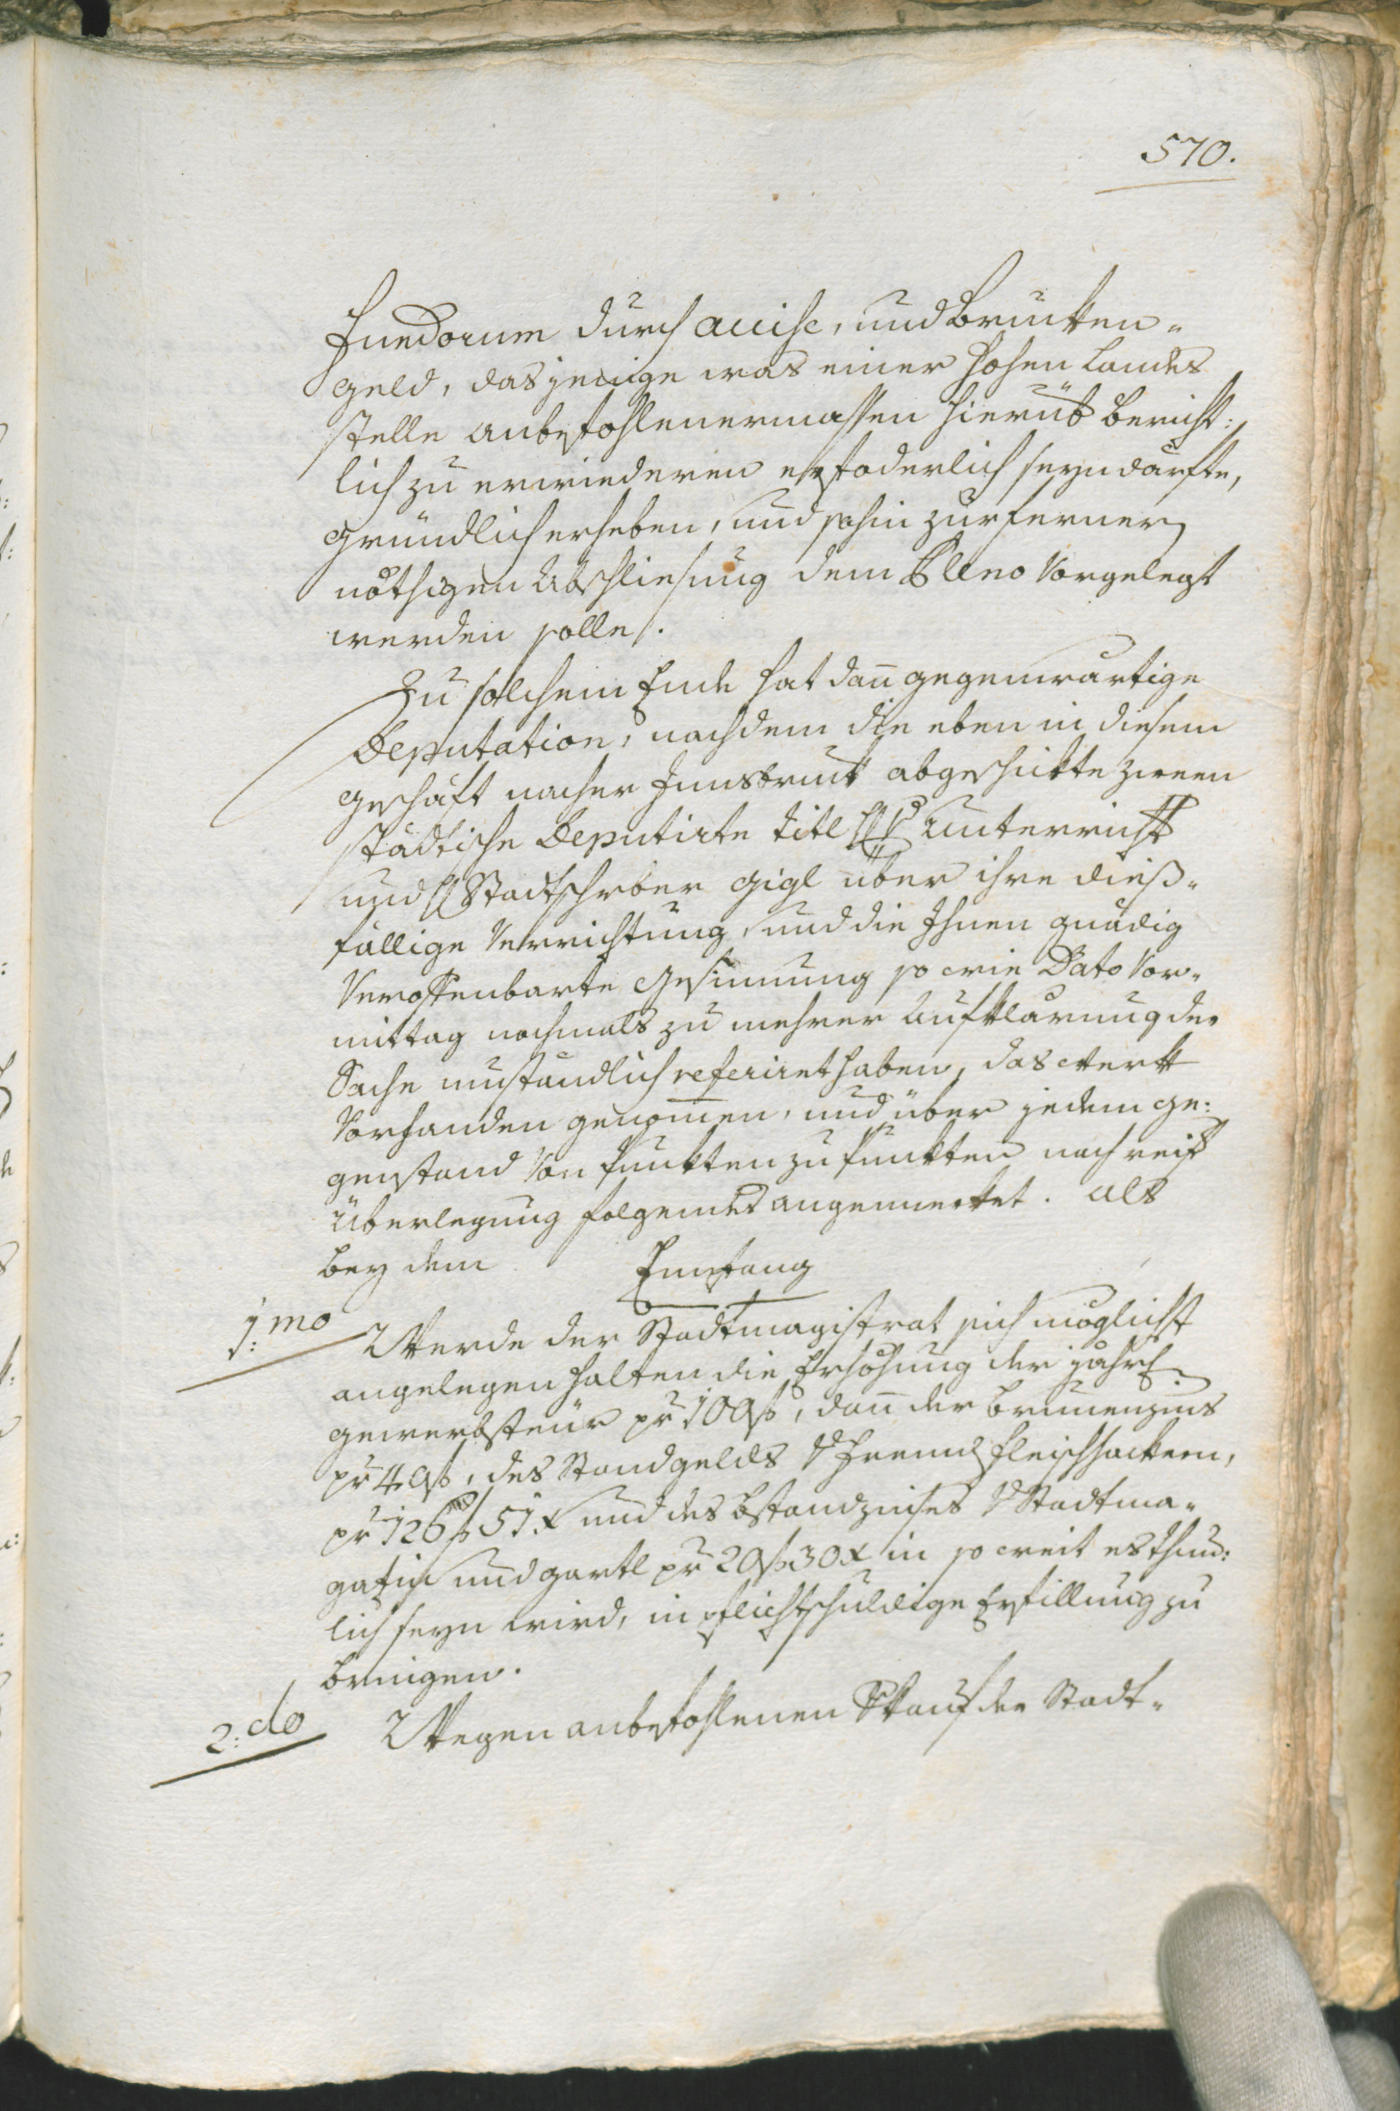 570.
Fundorum durch accise, und Brukten-
geld, dasjenige was einer hohen Landes
stelle anbefohlenermassen hierüb bericht:
lich zu erwiederen erfoderlich seyn därfte,
gründlich erheben, und sohin zur ferner
nöthigen Abschliesung dem Pleno Vorgelegt
werden solle.
Zu solchem Ende hat dan̄ gegenwärtige
Deputation, nachdem die eben in diesem
geschäft nacher Innsbruk abgeschikte zween
städtische Deputirte titl Unterricht
und Stadtschrber gigl über ihre dieß-
fällige Verrichtung, und die Ihnen gnädig
Veroffenbarte Gesinnung so wie Dato Vor-
mittag nochmals zu mehrer Aufklärung der
Sache umständlich referiret haben, das Werk
Vorhanden genom̄en, und über jedem ge:
genstand Von Punkten zu Punkten nach reif
Überlegung folgendes angemerket. Als
bey dem Empfang
1:mo Werde der Stadtmagistrat sich möglichst
angelegen halten die Erhöhung der jährl
gewerbsteur pr 100 f, dan̄ der Brunenzins
pr 40 f, des Standgelds d fremd fleischhackern,
pr 126 f 51 x und des bstandzinses d Stadtma-
gazin und gartl pr 20 f 30 x in so weit es thun:
lich seyn wird, in pflichtschuldige Erfillung zu
bringen.
2:do Wegen anbefohlenen Vkauf der Stadt-